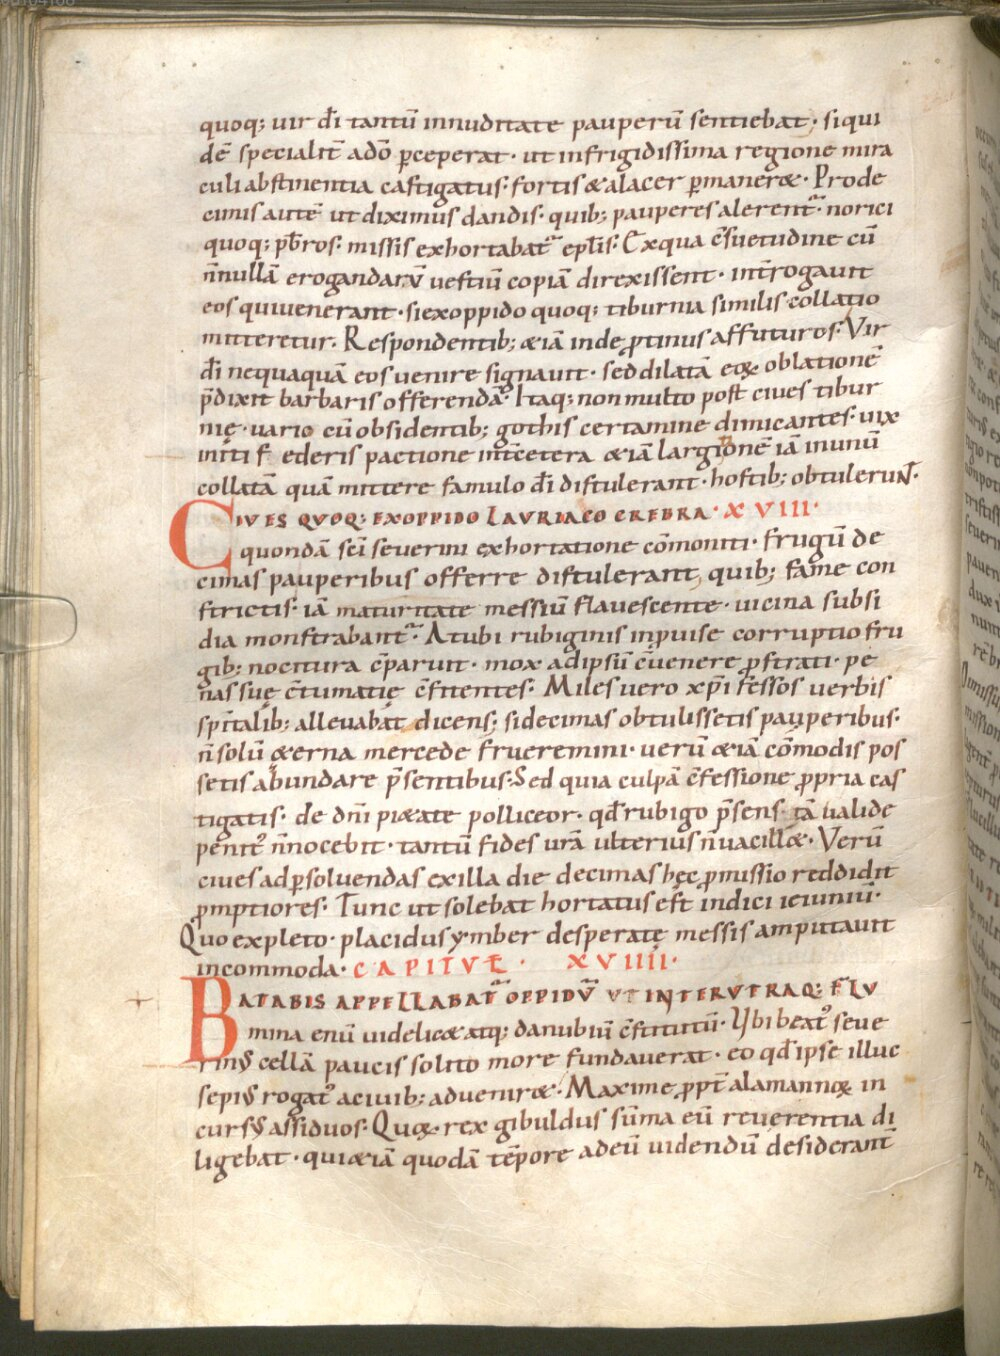 quoq; uir dī tantū innuditate pauperū sentiebat· siqui
dē specialit̄ adō p̄ceperat· ut infrigidissima regione mira
culi abstinentia castigatus· fortis & alacer p̄maner&· Prode
cimis autē ut diximus dandis· quib; pauperes alerent̄· norici
quoq; pb̄ros· missis exhortabat̄ epl̄is· Exqua c̄suetudine cū
n̄nullā erogandarū uestiū copiā direxissent· int̄rogauit
eos quiuenerant· siexoppido quoq; tiburnia similis collatio
mitteretur· Respondentib; &iā inde ꝓtinus affuturos· Vir
dī nequaquā eos uenire signauit· sed dilatā eoꝝ oblationē
p̄dixit barbaris offerendā· Itaq; non multo post ciues tibur
nię· uario cū obsidentib; gothis certamine dimicantes· uix
initi f ederis pactione int̄cetera &iā largionē iā inunū
collatā quā mittere famulo dī distulerant· hostib; obtulerunt·
CIVES QVOQ; EXOPPIDO LAVRIACO CREBRA· XVIII·
quondā sc̄i seuerini exhortatione cōmoniti· frugū de
cimas pauperibus offerre distulerant, quib; fame con
strictis· iā maturitate messiū flauescente· uicina subsi
dia monstrabant̄· Atubi rubiginis inp̄uise corruptio fru
gib; nocitura c̄paruit· mox adipsū c̄uenere ꝓstrati· pe
nas suę c̄tumatię c̄fitentes· Miles uero xp̄i fessos uerbis
sp̄italib; alleuabat dicens; sidecimas obtulissetis pauperibus·
n̄ solū &erna mercede frueremini· uerū &iā cōmodis pos
setis abundare p̄sentibus· Sed quia culpā c̄fessione ꝓpria cas
tigatis· de dn̄i pi&ate polliceor· qđ rubigo p̄sens· tā ualide
penit; n̄nocebit· tantū fides urā ulterius n̄uacill&· Verū
ciues adp̄soluendas exilla die decimas hęc ꝓmissio reddidit
ꝓmptiores· Tunc ut solebat hortatus est indici ieiuniū·
Quo expleto· placidus ymber desperatę messis amputauit
incommoda· CAPITVŁ· XVIIII·
BATABIS APPELLABAT̄ OPPIDV̄ VT INTERVTRAQ; FLV
mina enū uidelic& atq; danubiū c̄stitutū· Vbi beat; seue
rinꝰ cellā paucis solito more fundauerat· eo qđ ipse illuc
sepiꝰ rogat; aciuib; aduenir&· Maxime ꝓpt̄ alamannoꝝ in
cursꝰ assiduos· Quoꝝ rex gibuldus sūma eū reuerentia di
ligebat· qui &iā quodā tēpore adeū uidendū desiderant̄